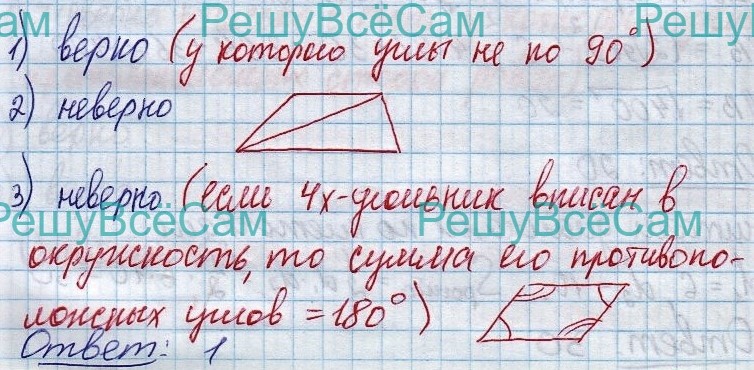 ам РешуВсёСам РешуВ
1) верно (у которого углы не по 90°)
2) неверно
3) неверно (если 4х-угольник вписан в
РешуВсёСам РешуВсёСам
окружность, то сумма его противопо-
ложных углов = 180°)
Ответ: 1